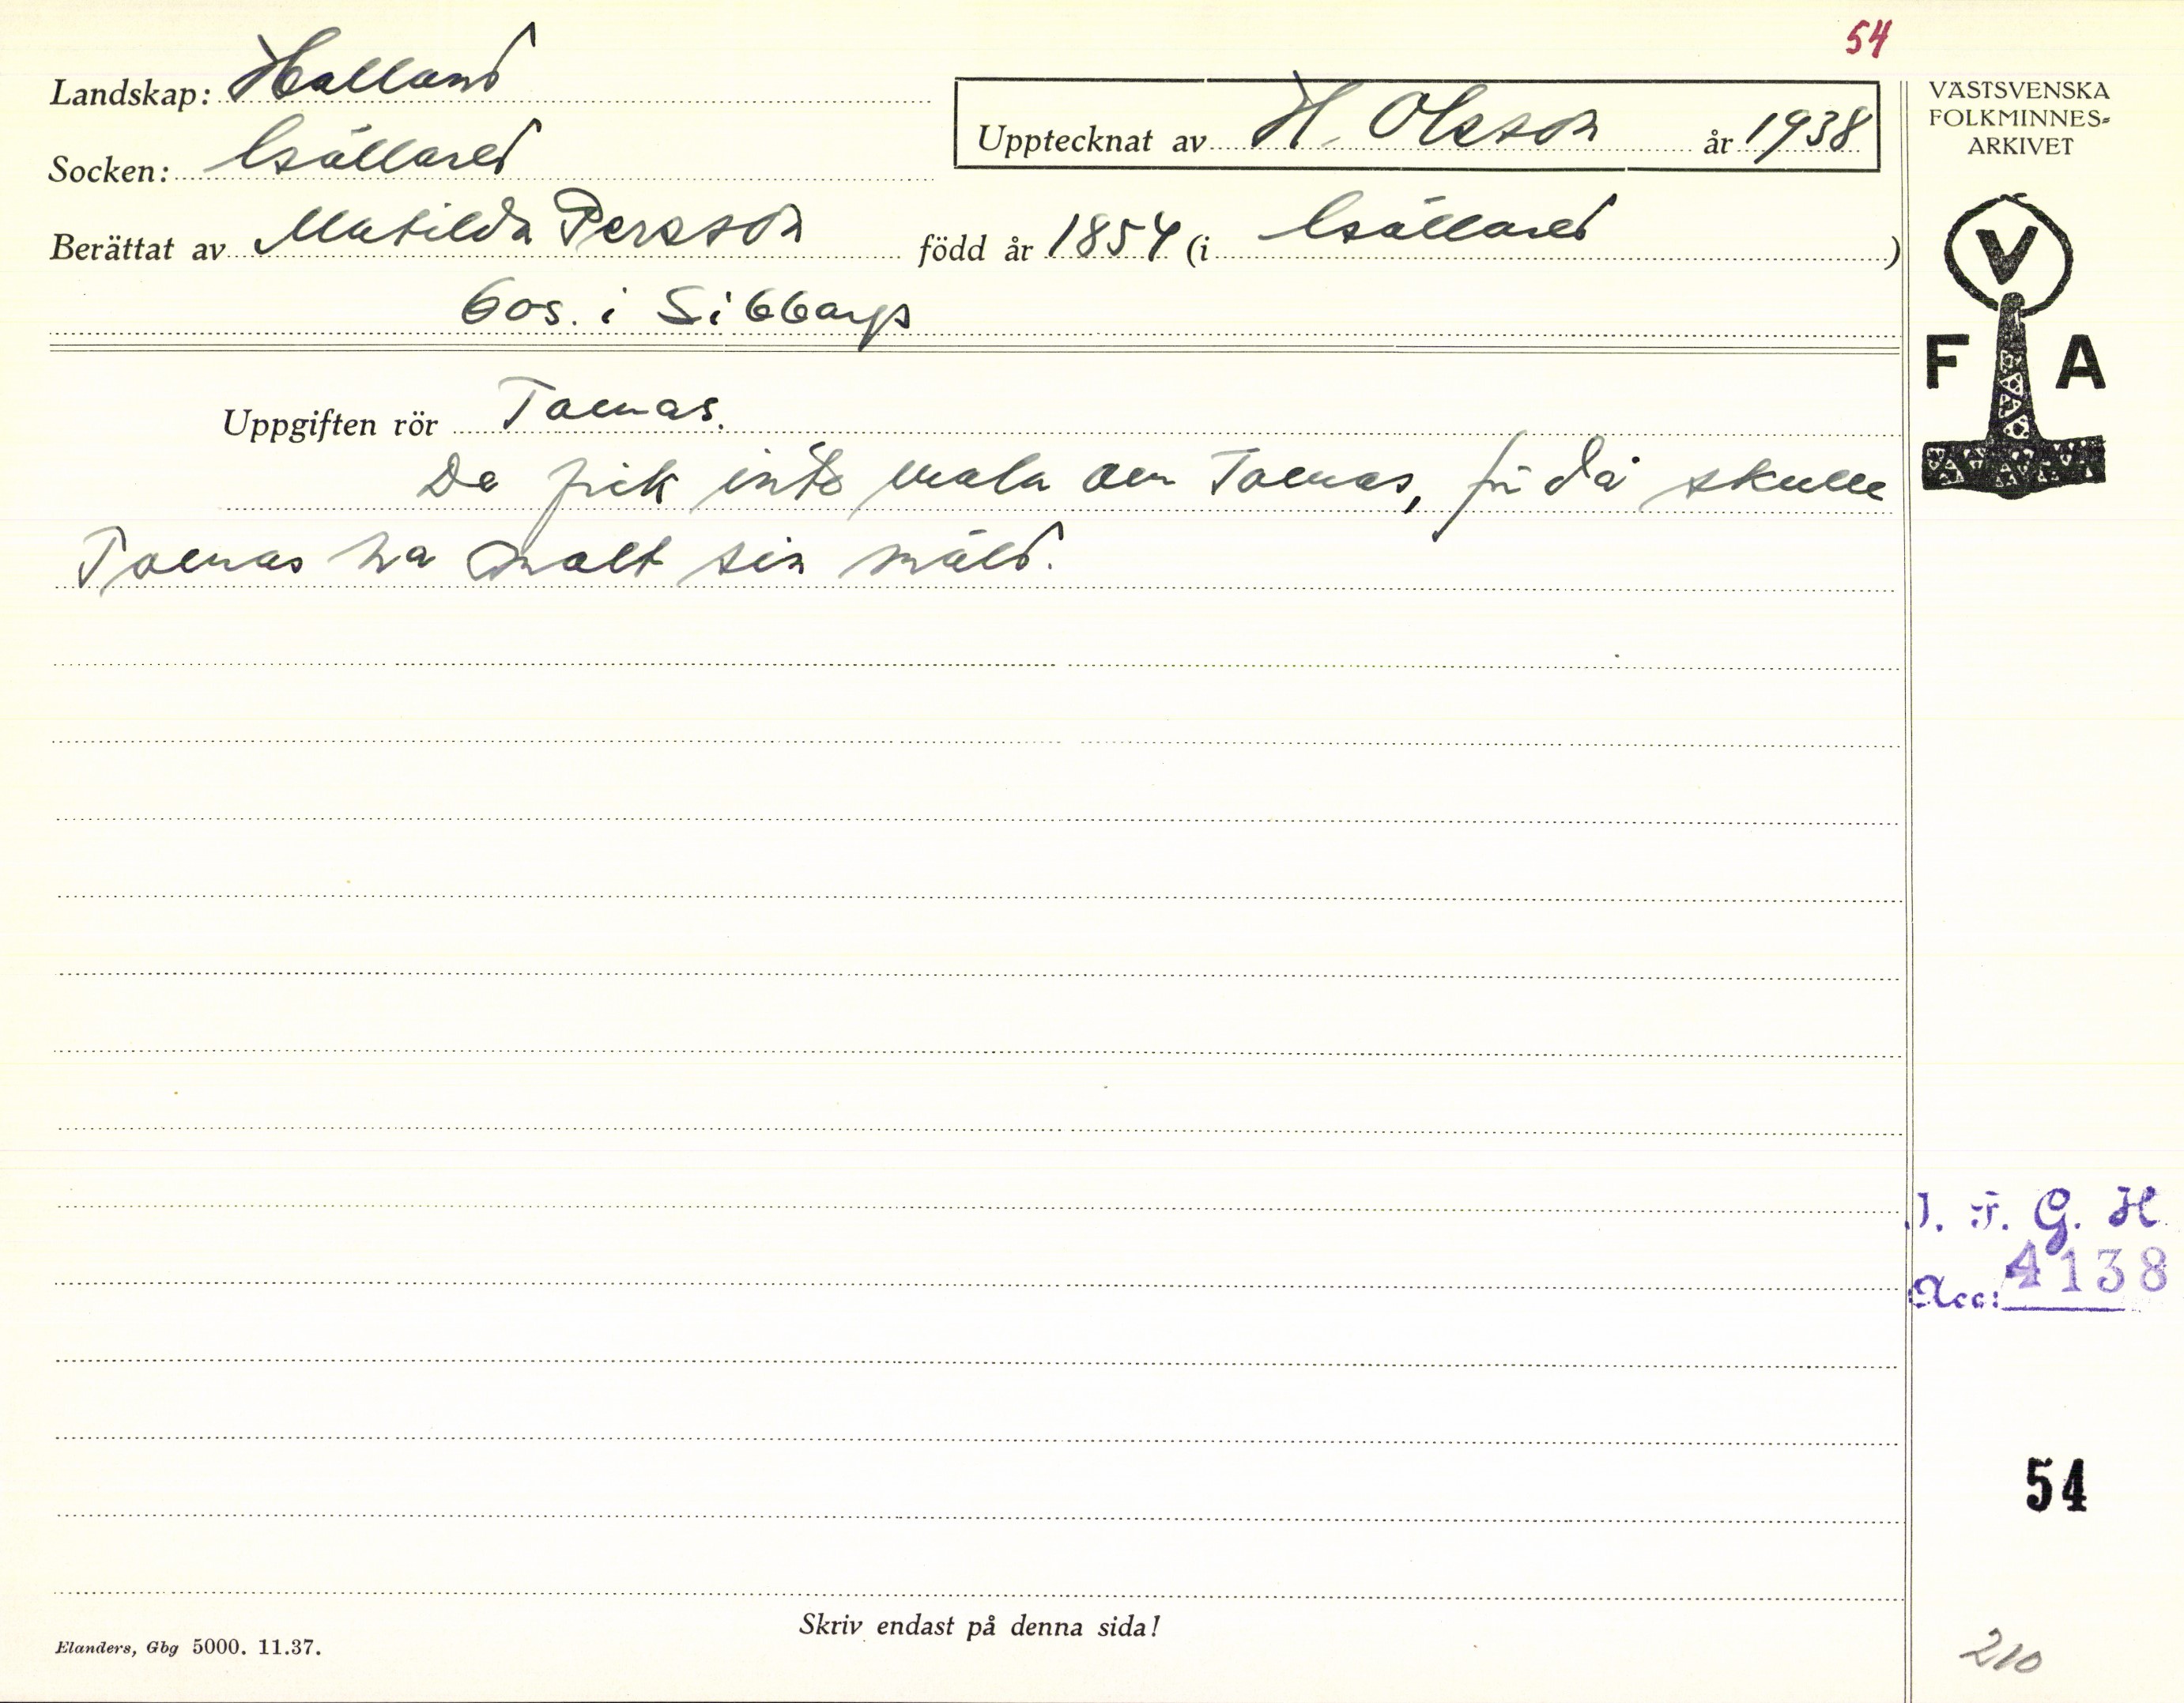 54
Landskap: Halland
Upptecknat av H. Olsson år 1938
VÄSTSVENSKA
FOLKMINNES-
ARKIVET
Socken: Gällared
Berättat av Matilda Persson född år 1854 (i Gällared)
bos. i Sibbarp
V
F A
Uppgiften rör Tomas.
De fick inte mala om Tomas, för då skulle
Tomas ha malt sin mäld.
I. F. G. H
Acc: 4138
54
Skriv endast på denna sida!
Elanders, Gbg 5000. 11.37.
210